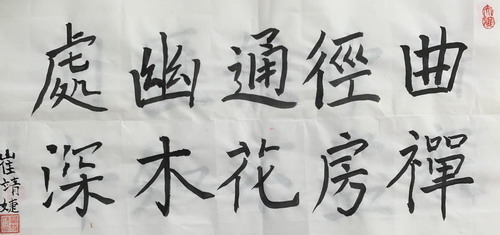 曲徑通幽處
禪房花木深
崔靖婕